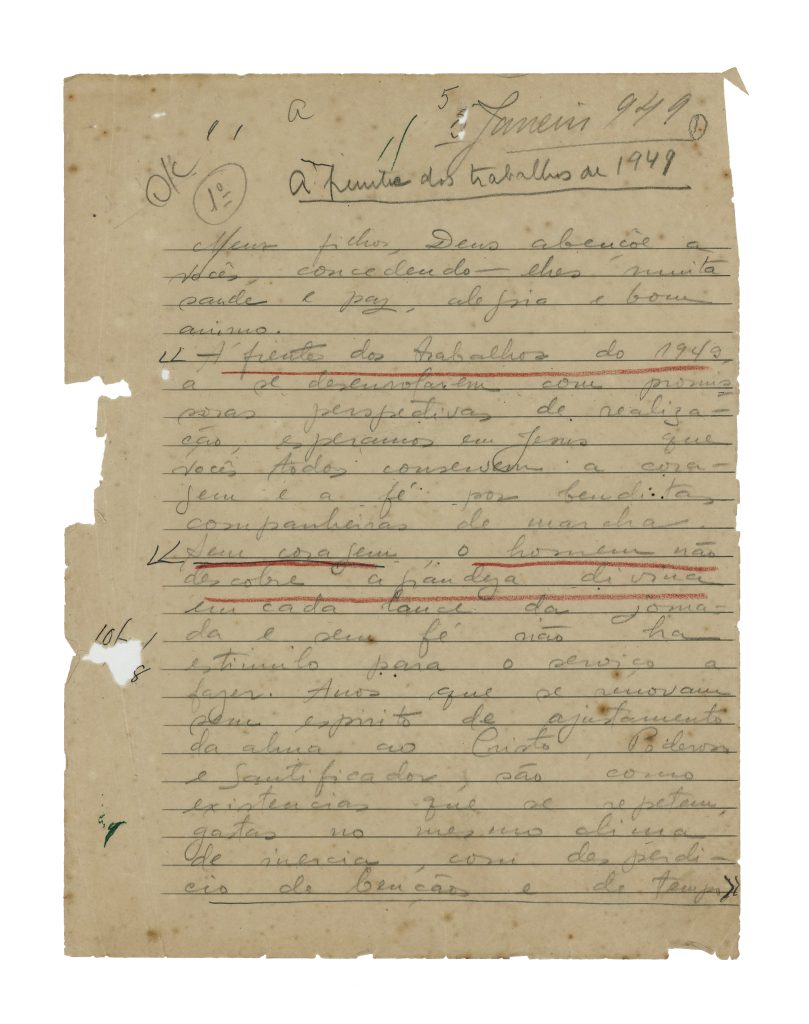 A
5
Janeiro 949
1.
OK
1º
À frente dos trabalhos de 1949
Meus filhos, Deus abençõe a
vocês, concedendo-lhes muita
saude e paz, alegria e bom
animo.
"À frente dos trabalhos do 1949,
a se desenrolarem com promis
soras perspectivas de realiza-
ção, esperamos em Jesus que
vocês todos conservem a cora-
gem e a fé por benditas
companheiras de marcha.
Sem coragem, o homem não
descobre a grandeza divina
em cada lance da jorna-
da e sem fé não ha
estimulo para o serviço a
fazer. Anos que se renovam
sem espirito de ajustamento
da alma ao Cristo, Poderoso
e Santificador, são como
existencias que se repetem,
gastas no mesmo clima
de inercia, com desperdi-
cio de bençãos e de tempo»
10f
8